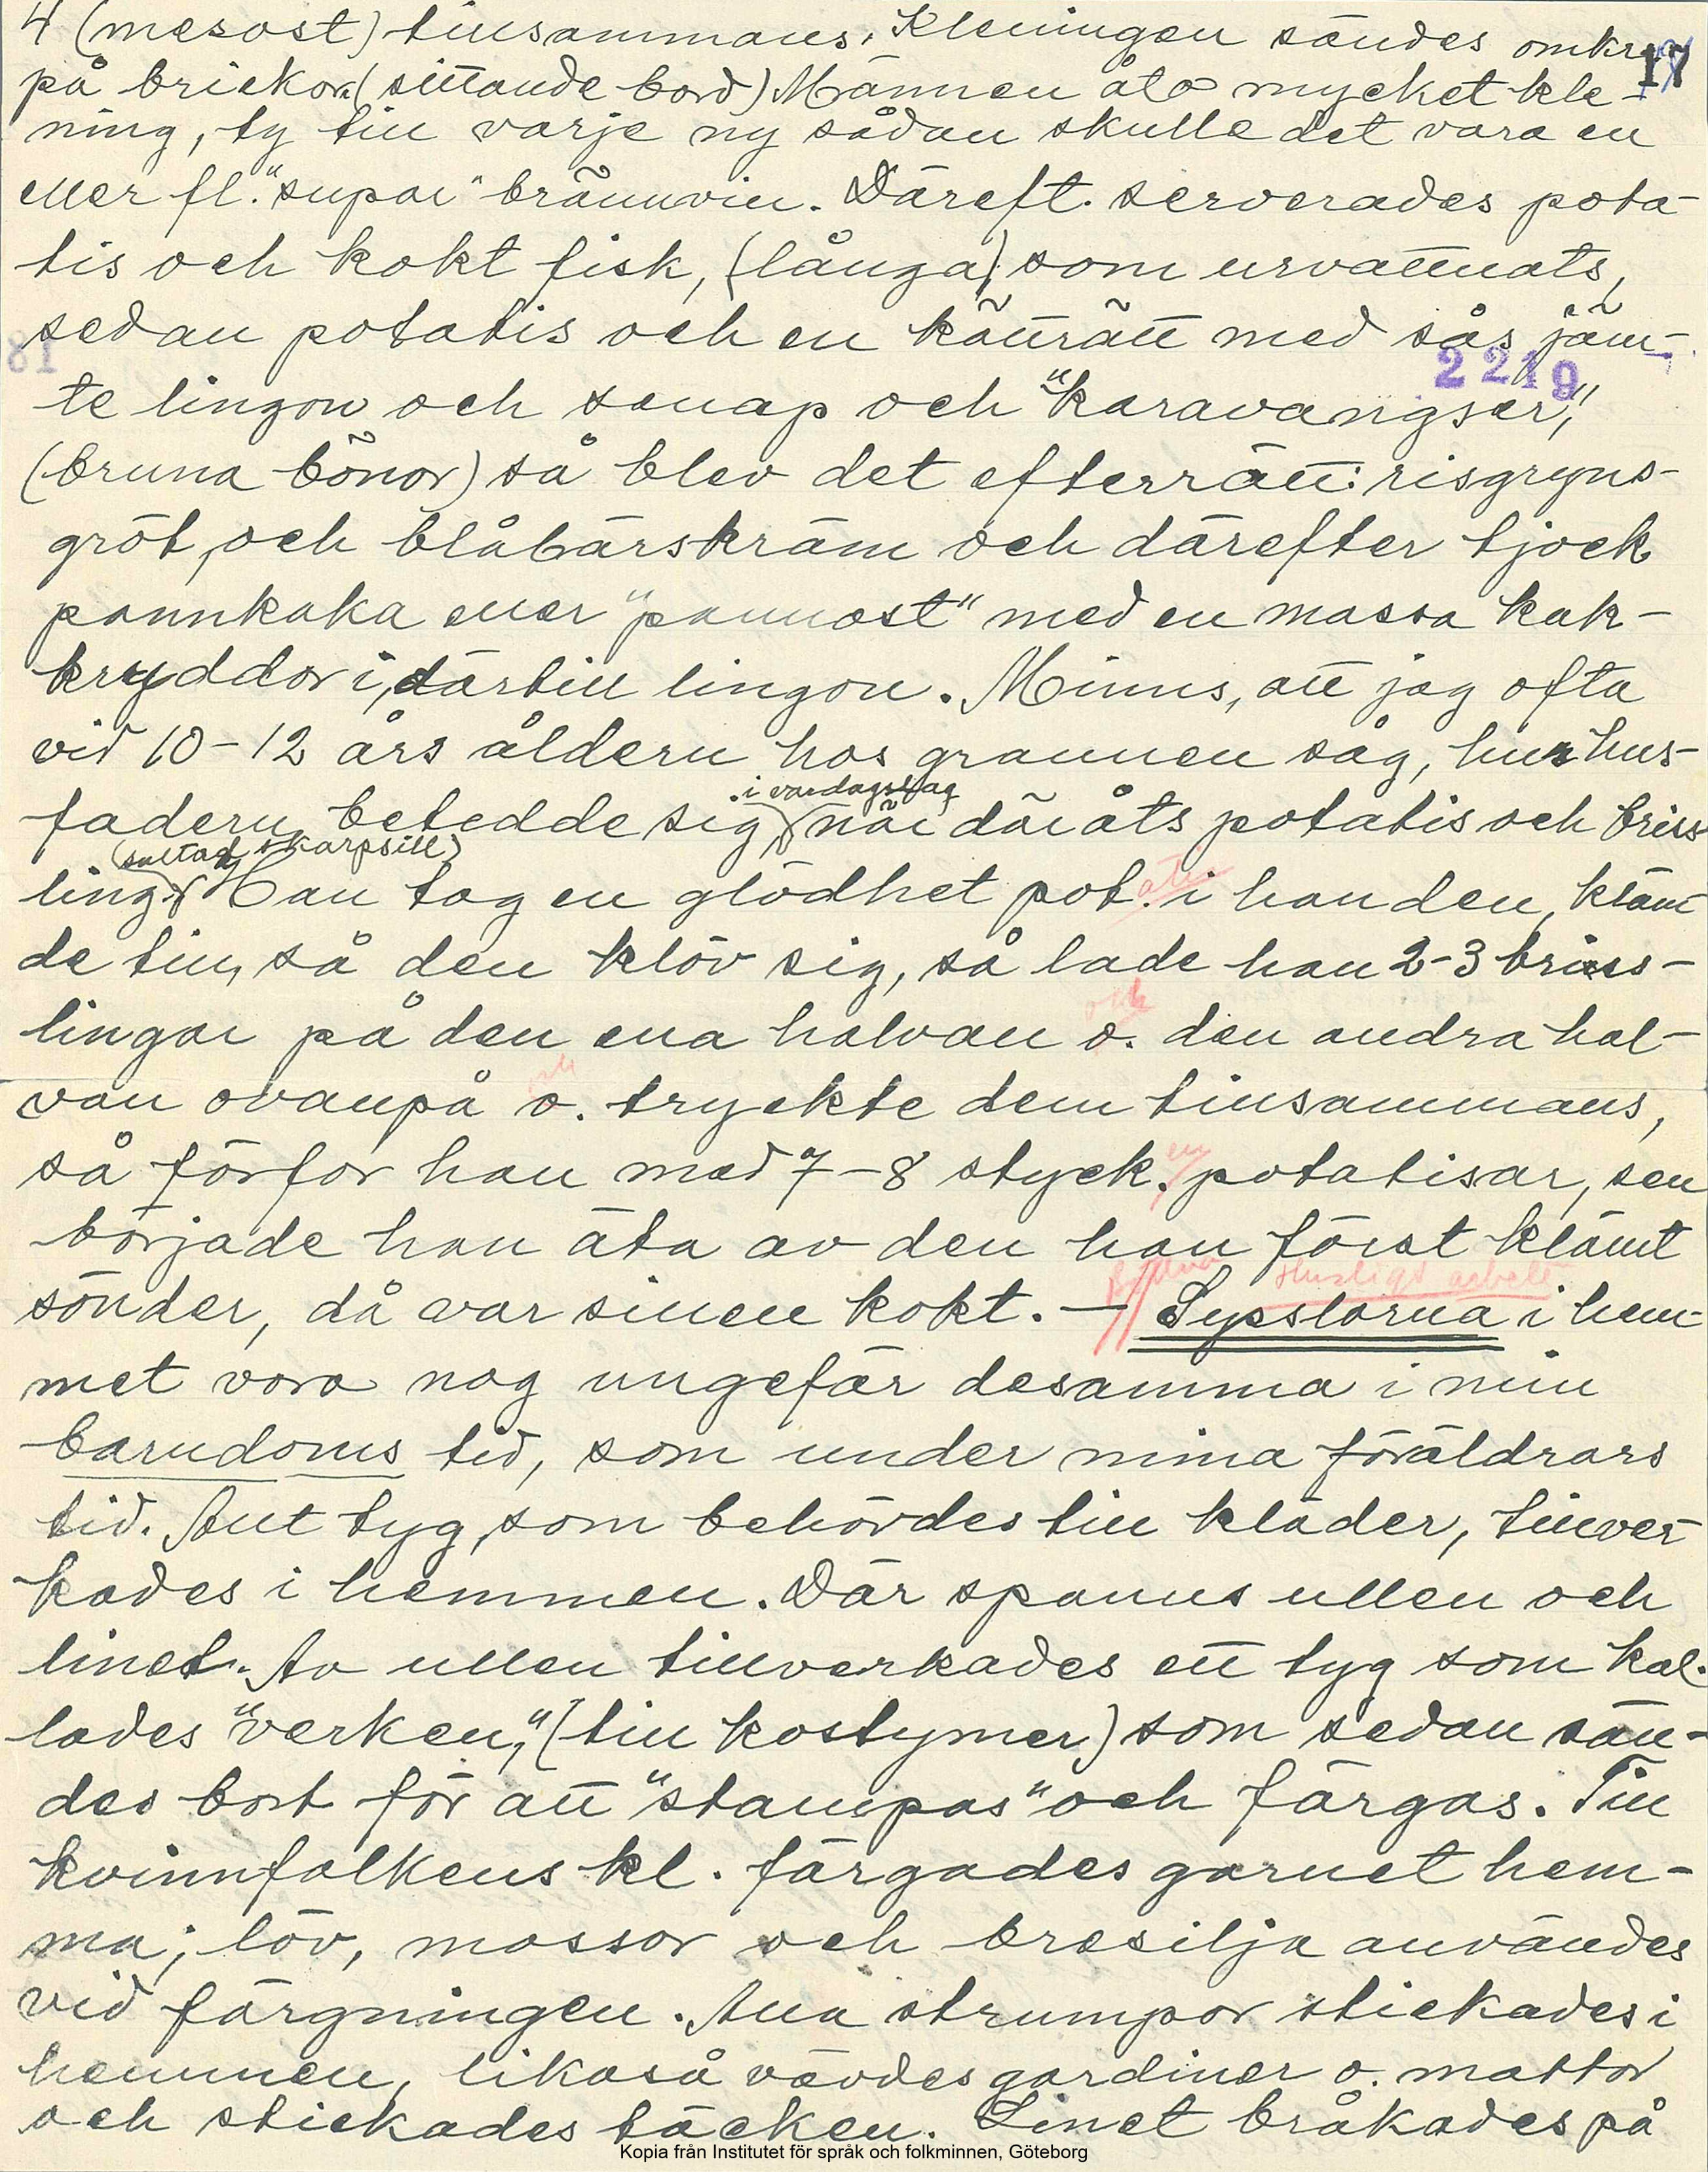 4 (mesost) tillsammans. Kleningen sändes omkr.
17
på brickor (sittande bord) Männen åto mycket kle-
ning, ty till varje ny sådan skulle det vara en
eller fl. "supar" brännvin. Däreft. serverades pota-
tis och kokt fisk, (långa) som urvattnats,
sedan potatis och en kötträtt med sås jäm-
81
2219
te lingon och senap och "karavangser,"
(bruna bönor) så blev det efterrätt: risgryns-
gröt, och blåbärskräm och därefter tjock
pannkaka eller "pannost" med en massa kak-
kryddor i, därtill lingon. Minns, att jag ofta
vid 10-12 års åldern hos grannen såg, hur hus-
i vardagslag
fadern betedde sig, när där åts potatis och briss-
(saltad skarpsill)
ling. Han tog en glödhet pot. i handen, kläm-
atis
de till, så den klöv sig, så lade han 2-3 briss-
lingar på den ena halvan o. den andra hal-
och
van ovanpå o. tryckte dem tillsammans,
och
så förfor han med 7-8 styck. potatisar, sen
en
började han äta av den han först klämt
sönder, då var sillen kokt. - Sysslorna i hem-
Husligt arbete
met voro nog ungefär desamma i min
barndoms tid, som under mina föräldrars
tid. Allt tyg, som behövdes till kläder, tillver-
kades i hemmen. Där spanns ullen och
linet. Av ullen tillverkades ett tyg som kal-
lades "verken," (till kostymer) som sedan sän-
des bort för att "stampas" och färgas. Till
kvinnfolkens kl. färgades garnet hem-
ma; löv, mossor och bresilja användes
vid färgningen. Alla strumpor stickades i
hemmen, likaså vävdes gardiner o. mattor
och stickades täcken. Linet bråkades på
Kopia från Institutet för språk och folkminnen, Göteborg